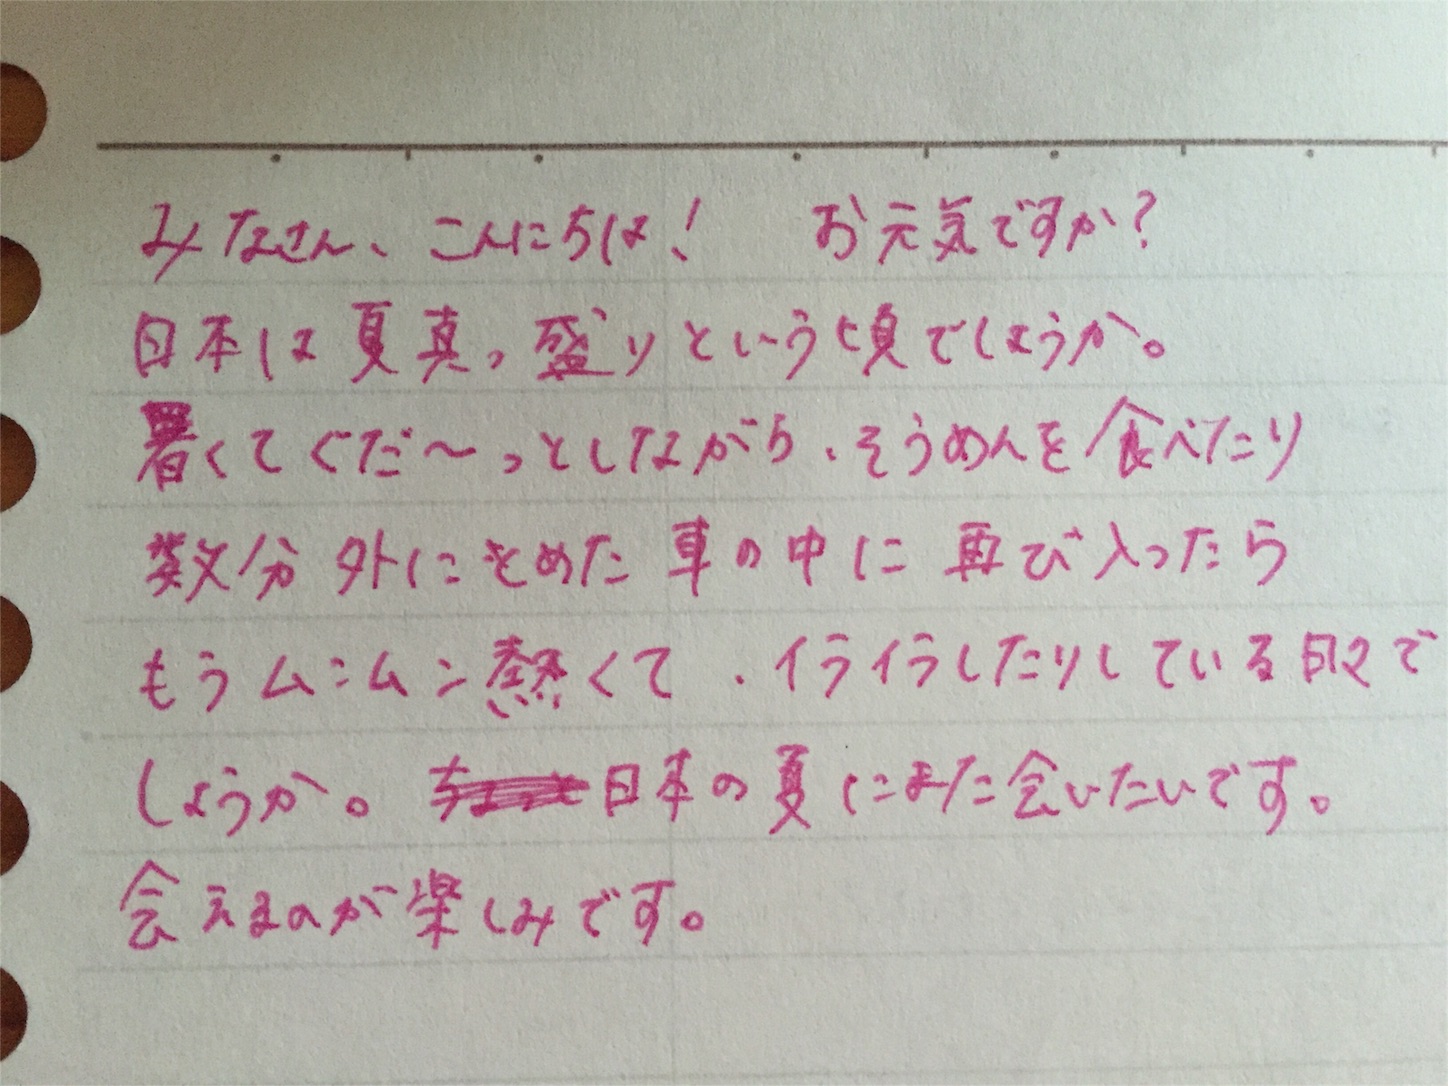 みなさん、こんにちは！　お元気ですか？
日本は夏真っ盛りという頃でしょうか。
暑くてぐだ〜っとしながら、そうめんを食べたり
数分外にとめた車の中に再び入ったら
もうムンムン熱くて、イライラしたりしている日々で
しょうか。日本の夏にまた会いたいです。
会えるのが楽しみです。